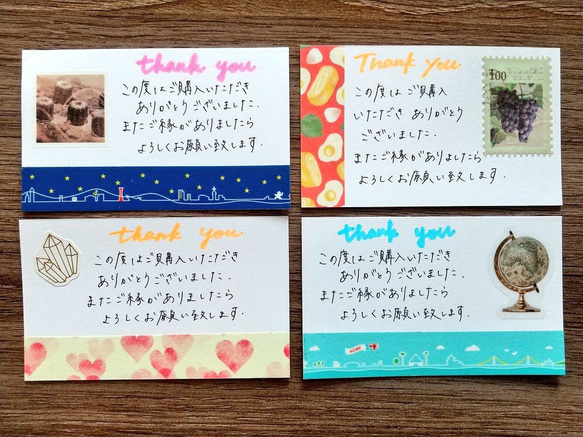 thank you
この度はご購入いただき
ありがとうございました.
またご縁がありましたら
よろしくお願い致します.
Thank You
この度はご購入
いただき ありがとう
ございました.
またご縁がありましたら
よろしくお願い致します.
100
thank you
この度はご購入いただき
ありがとうございました.
またご縁がありましたら
よろしくお願い致します.
thank you
この度はご購入いただき
ありがとうございました.
またご縁がありましたら
よろしくお願い致します.